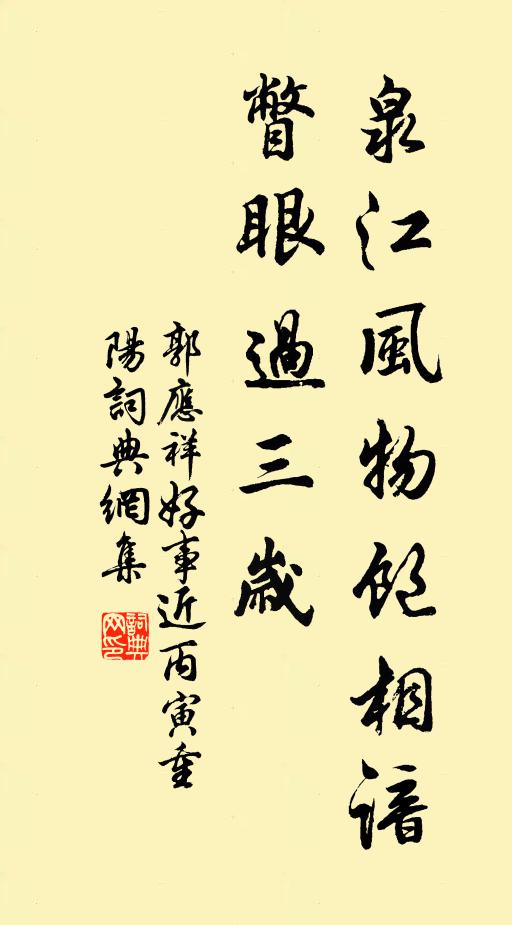 泉江風物飽相諳
瞥眼過三歲
郭應祥好事近丙寅重
陽詞典網集
詞典
网印